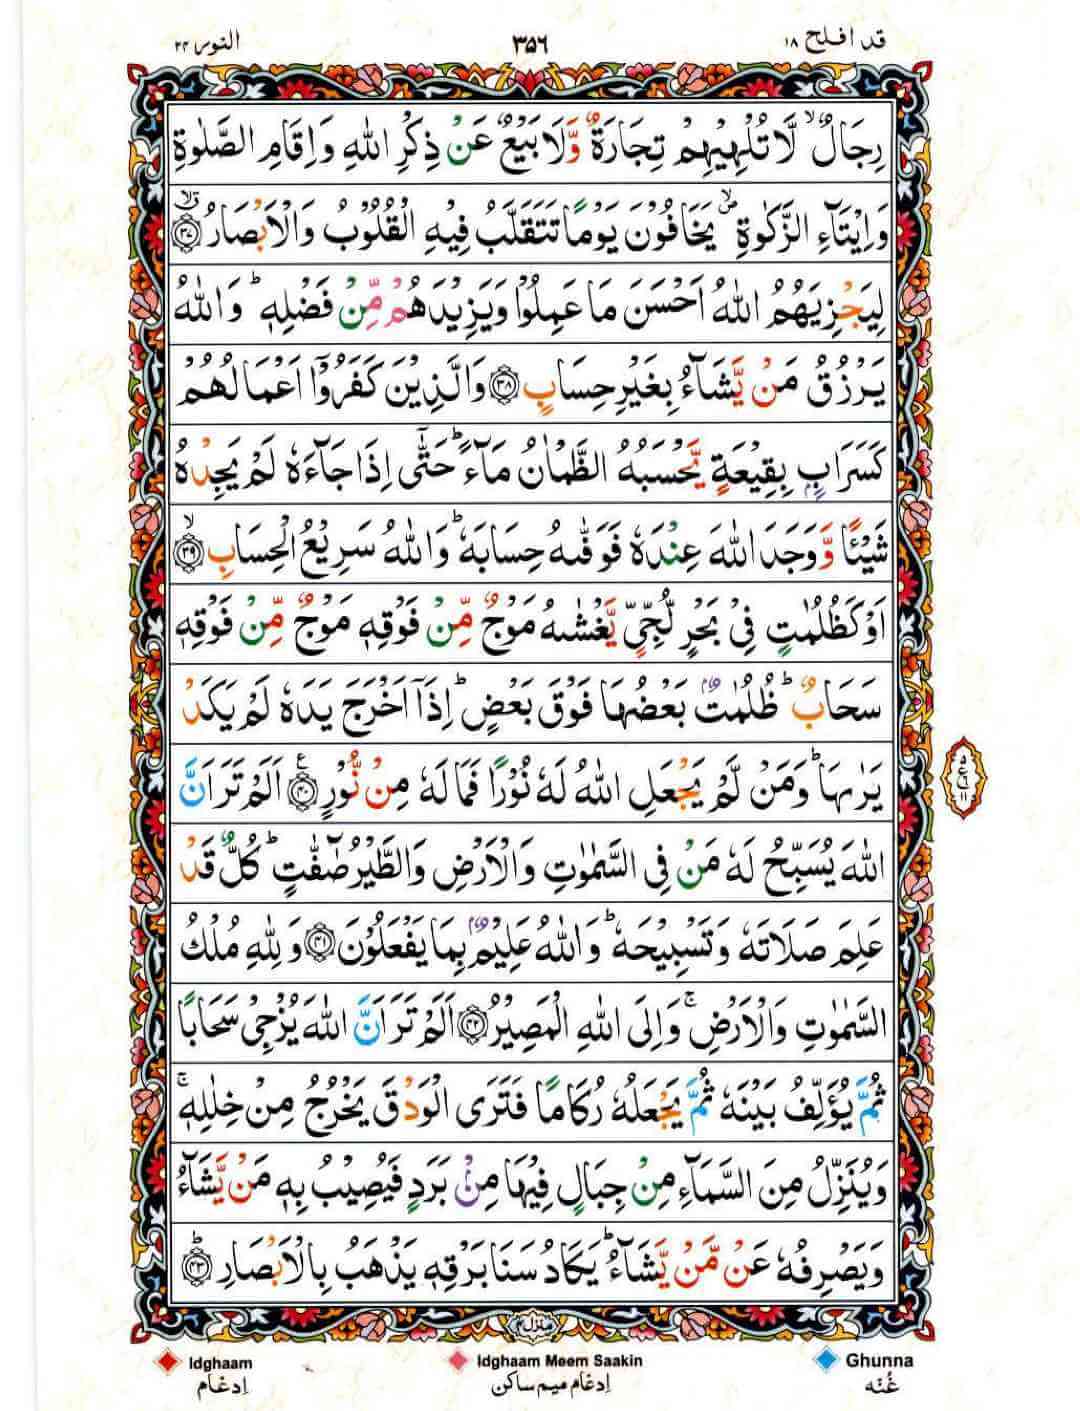 قد افلح ١٨
٣٥٦
النور ٢٤
رِجَالٌ ۙ لَّا تُلْهِيْهِمْ تِجَارَةٌ وَّلَا بَيْعٌ عَنْ ذِكْرِ اللّٰهِ وَاِقَامِ الصَّلٰوةِ
وَاِيْتَآءِ الزَّكٰوةِ ۙ يَخَافُوْنَ يَوْمًا تَتَقَلَّبُ فِيْهِ الْقُلُوْبُ وَالْاَبْصَارُ ﴿٣٧﴾ ۙ
لِيَجْزِيَهُمُ اللّٰهُ اَحْسَنَ مَا عَمِلُوْا وَيَزِيْدَهُمْ مِّنْ فَضْلِهٖ ؕ وَاللّٰهُ
يَرْزُقُ مَنْ يَّشَآءُ بِغَيْرِ حِسَابٍ ﴿٣٨﴾ وَالَّذِيْنَ كَفَرُوْۤا اَعْمَالُهُمْ
كَسَرَابٍۭ بِقِيْعَةٍ يَّحْسَبُهُ الظَّمْاٰنُ مَآءً ؕ حَتّٰۤى اِذَا جَآءَهٗ لَمْ يَجِدْهُ
شَيْئًا وَّوَجَدَ اللّٰهَ عِنْدَهٗ فَوَفّٰىهُ حِسَابَهٗ ؕ وَاللّٰهُ سَرِيْعُ الْحِسَابِ ﴿٣٩﴾ ۙ
اَوْ كَظُلُمٰتٍ فِيْ بَحْرٍ لُّجِّيٍّ يَّغْشٰىهُ مَوْجٌ مِّنْ فَوْقِهٖ مَوْجٌ مِّنْ فَوْقِهٖ
سَحَابٌ ؕ ظُلُمٰتٌۢ بَعْضُهَا فَوْقَ بَعْضٍ ؕ اِذَاۤ اَخْرَجَ يَدَهٗ لَمْ يَكَدْ
يَرٰىهَا ؕ وَمَنْ لَّمْ يَجْعَلِ اللّٰهُ لَهٗ نُوْرًا فَمَا لَهٗ مِنْ نُّوْرٍ ﴿٤٠﴾ ع اَلَمْ تَرَ اَنَّ
اللّٰهَ يُسَبِّحُ لَهٗ مَنْ فِى السَّمٰوٰتِ وَالْاَرْضِ وَالطَّيْرُ صٰٓفّٰتٍ ؕ كُلٌّ قَدْ
عَلِمَ صَلَاتَهٗ وَتَسْبِيْحَهٗ ؕ وَاللّٰهُ عَلِيْمٌۢ بِمَا يَفْعَلُوْنَ ﴿٤١﴾ وَلِلّٰهِ مُلْكُ
السَّمٰوٰتِ وَالْاَرْضِ ۚ وَاِلَى اللّٰهِ الْمَصِيْرُ ﴿٤٢﴾ اَلَمْ تَرَ اَنَّ اللّٰهَ يُزْجِيْ سَحَابًا
ثُمَّ يُؤَلِّفُ بَيْنَهٗ ثُمَّ يَجْعَلُهٗ رُكَامًا فَتَرَى الْوَدْقَ يَخْرُجُ مِنْ خِلٰلِهٖ ۚ
وَيُنَزِّلُ مِنَ السَّمَآءِ مِنْ جِبَالٍ فِيْهَا مِنْۢ بَرَدٍ فَيُصِيْبُ بِهٖ مَنْ يَّشَآءُ
وَيَصْرِفُهٗ عَنْ مَّنْ يَّشَآءُ ؕ يَكَادُ سَنَا بَرْقِهٖ يَذْهَبُ بِالْاَبْصَارِ ﴿٤٣﴾ ؕ
٥
ع
١١
منزل ٤
Idghaam
اِدغَام
Idghaam Meem Saakin
اِدغام میم ساکن
Ghunna
غُنّه